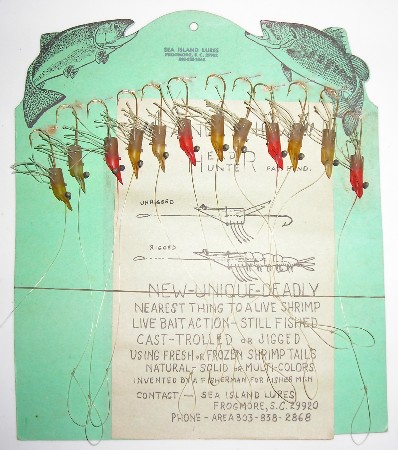 SEA ISLAND LURES
FROGMORE, S.C. 29920
HEAD
HUNTER
UNRIGGED
RIGGED
NEW-UNIQUE-DEADLY
NEAREST THING TO A LIVE SHRIMP
LIVE BAIT ACTION - STILL FISHED
CAST-TROLLED OR JIGGED
USING FRESH OR FROZEN SHRIMP TAILS
NATURAL - SOLID OR MULTI-COLORS
INVENTED BY A FISHERMAN FOR FISHERMAN
CONTACT - SEA ISLAND LURES
FROGMORE, S.C. 29920
PHONE - AREA 803-838-2868